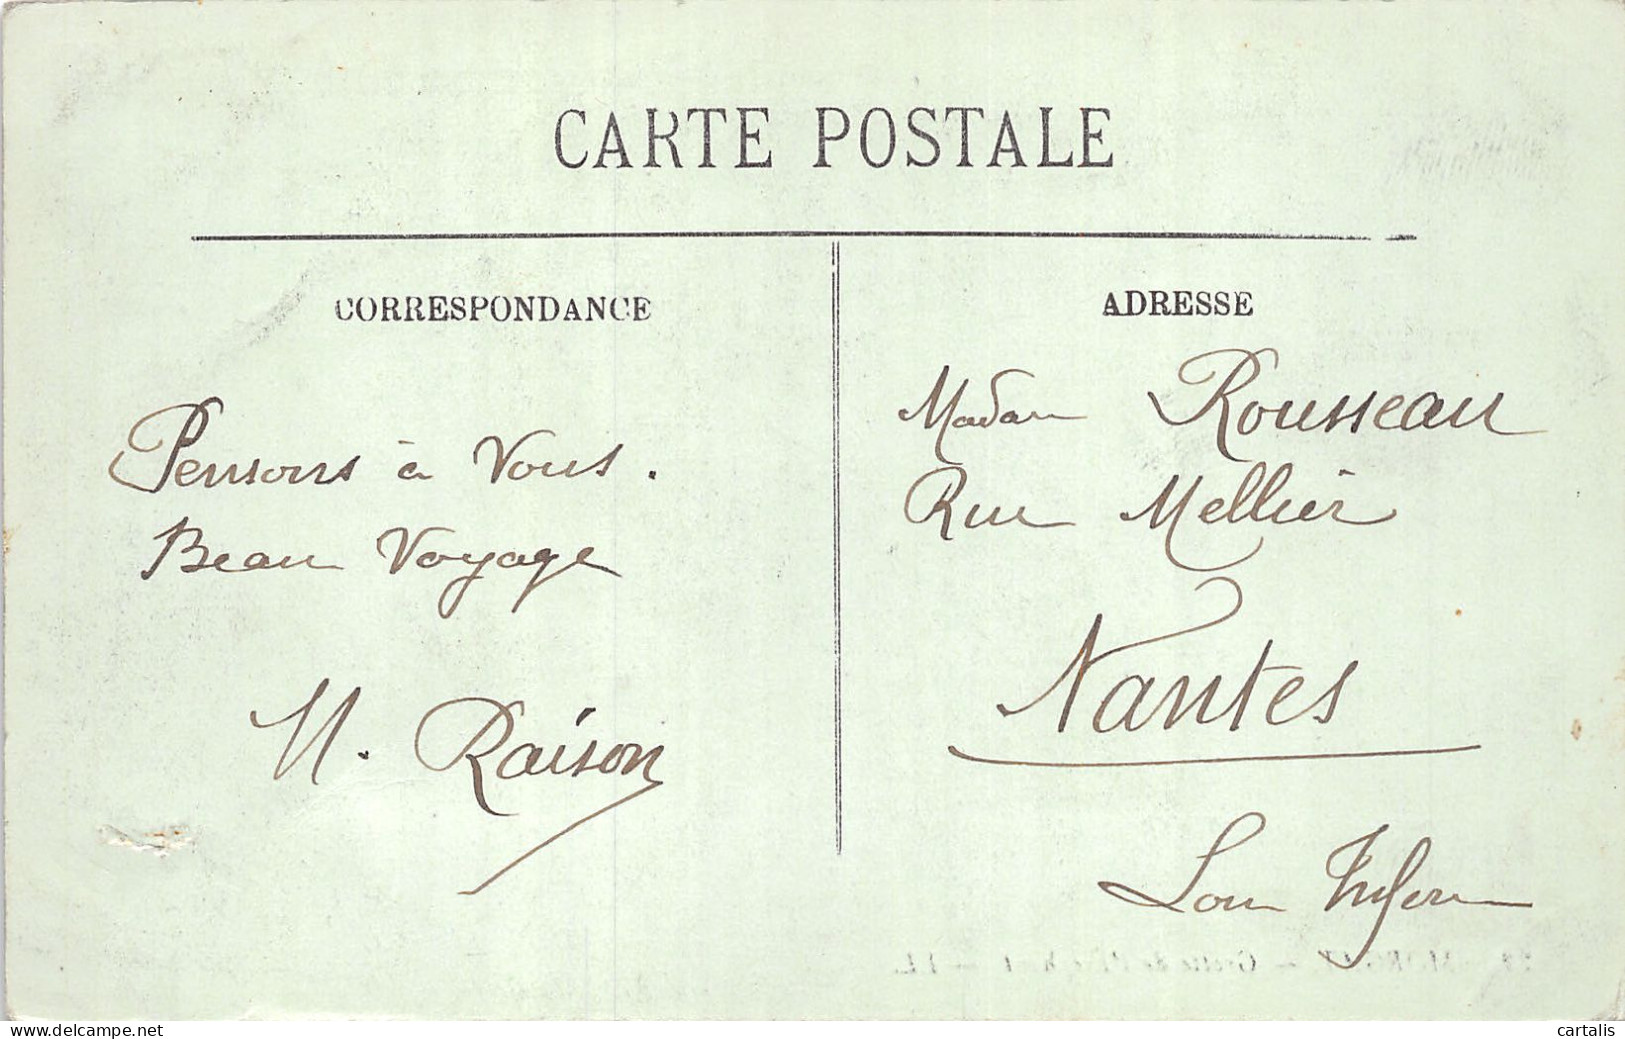 CARTE POSTALE
CORRESPONDANCE
Pensons à Vous.
Beau Voyage
M. Raison
ADRESSE
Madam Rousseau
Rue Mellier
Nantes
Loire Infer
www.delcampe.net
cartalis